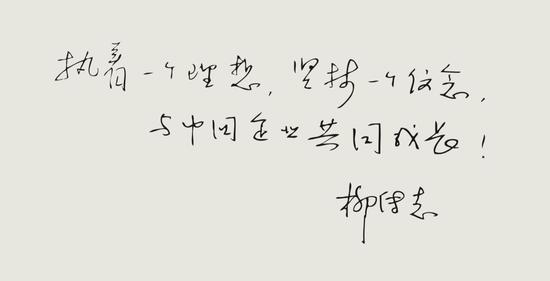 执着一个理想，坚持一个信念，
与中国企业共同成长！
柳传志